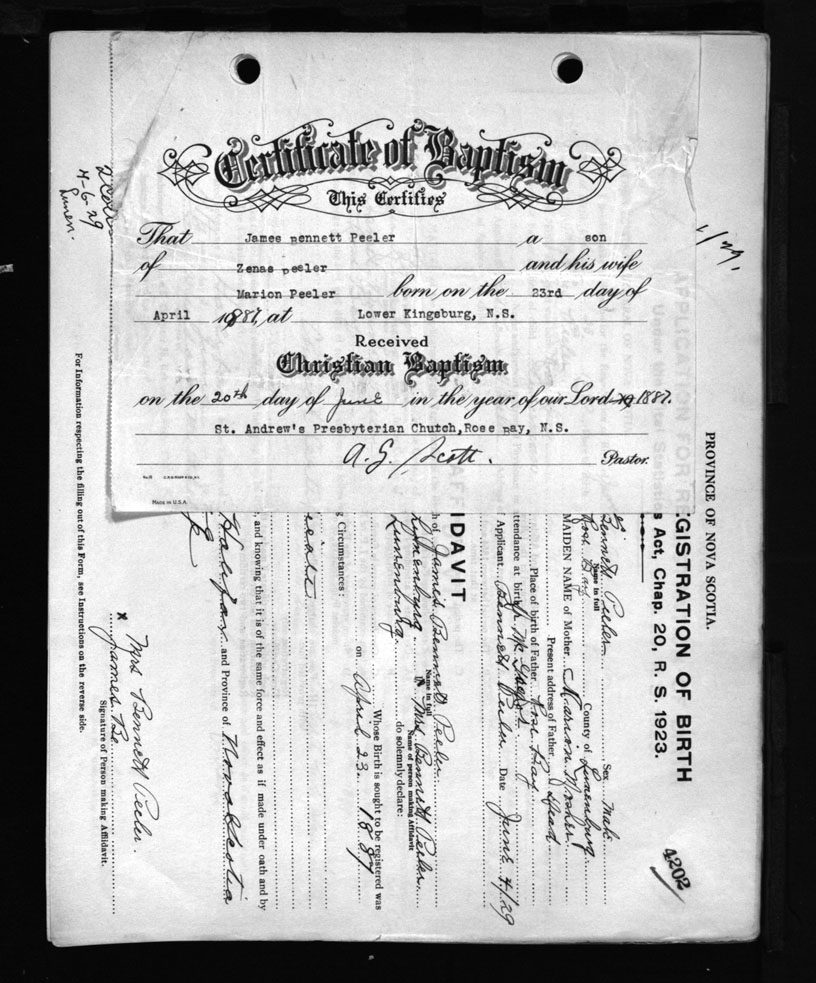 Certificate of Baptism
This Certifies
That James Bennett Peeler a son
of Zenas Peeler and his wife
Marion Peeler born on the 23rd day of
April 1887, at Lower Kingsburg, N.S.
Received
Christian Baptism
on the 20th day of June in the year of our Lord 1887.
St. Andrew's Presbyterian Chutch, Rose Bay, N.S.
A. G. Scott. Pastor.
MADE IN U.S.A.
4-6-29
Lunen.
PROVINCE OF NOVA SCOTIA.
EGISTRATION OF BIRTH
s Act, Chap. 20, R. S. 1923.
4202
Bennett Peeler Sex Male
Name in full
Rose Bay County of Lunenburg
MAIDEN NAME of Mother Marion Mosher
Present address of Father Dead
Place of birth of Father Rose Bay
ttendance at birth
Applicant Bennett Peeler Date June 4/29
IDAVIT
James Bennett Peeler
Name in full
Lunenburg. I, Mrs Bennett Peeler
Name of person making Affidavit
Lunenburg. do solemnly declare:
Whose Birth is sought to be registered was
on April 23. 1887
g Circumstances:
, and knowing that it is of the same force and effect as if made under oath and by
Halifax and Province of Nova Scotia
Mrs Bennett Peeler.
x James Be
Signature of Person making Affidavit.
For Information respecting the filling out of this Form, see Instructions on the reverse side.